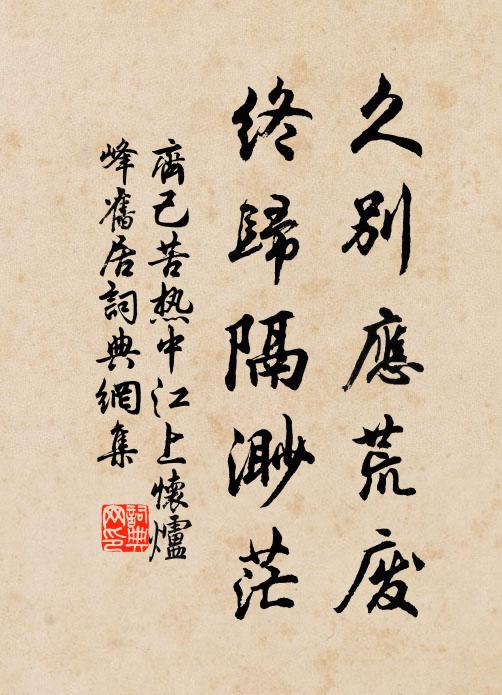 久别應荒废
終歸隔渺茫
齊己苦热中江上懷爐
峰舊居詞典網集
詞典
网印